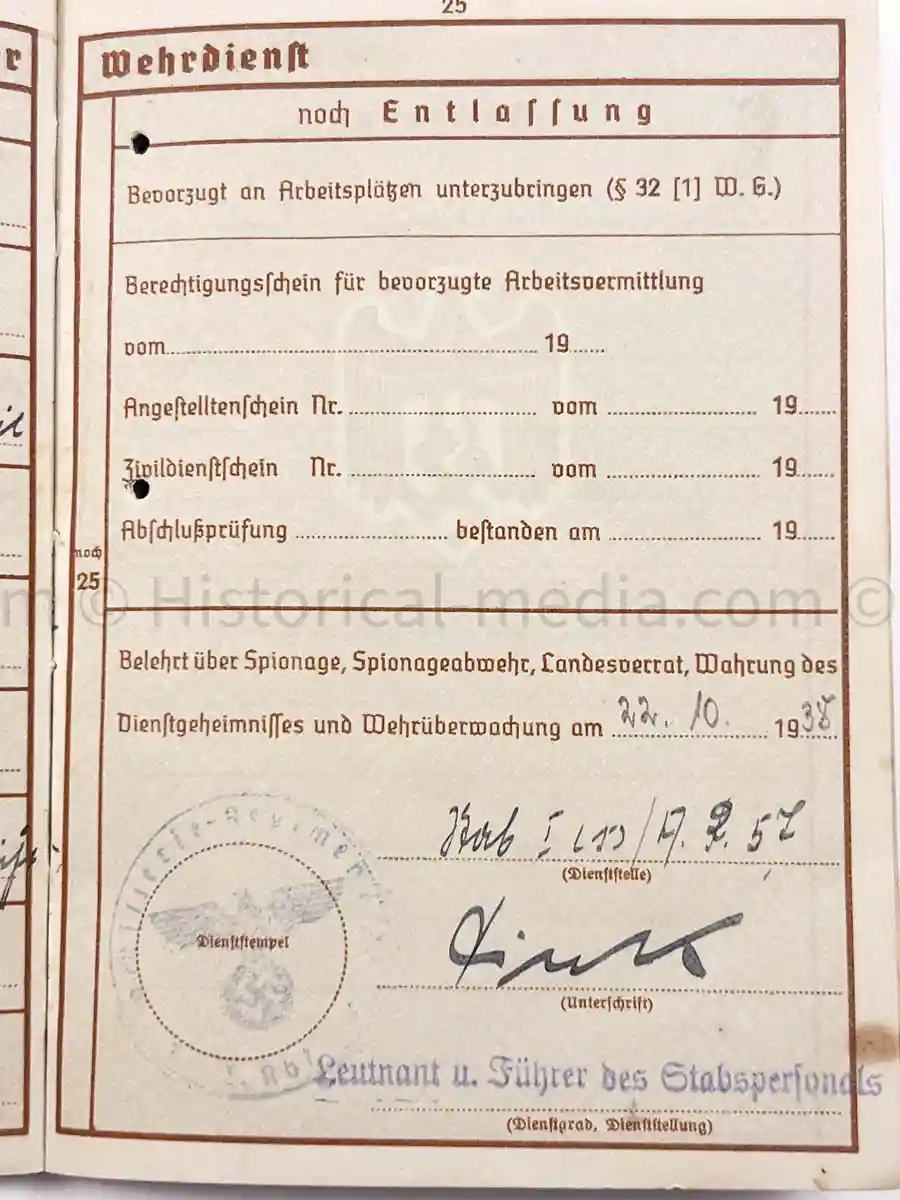 25
Wehrdienst
noch Entlassung
Bevorzugt an Arbeitsplätzen unterzubringen (§ 32 [1] W. G.)
Berechtigungsschein für bevorzugte Arbeitsvermittlung
vom 19
Angestelltenschein Nr. vom 19
Zivildienstschein Nr. vom 19
Abschlußprüfung bestanden am 19
noch
25
© Historical-media.com ©
Belehrt über Spionage, Spionageabwehr, Landesverrat, Wahrung des
Dienstgeheimnisses und Wehrüberwachung am 22. 10. 1938
Stab I /A. R. 57
(Dienststelle)
Dienststempel
(Unterschrift)
Leutnant u. Führer des Stabspersonals
(Dienstgrad, Dienststellung)